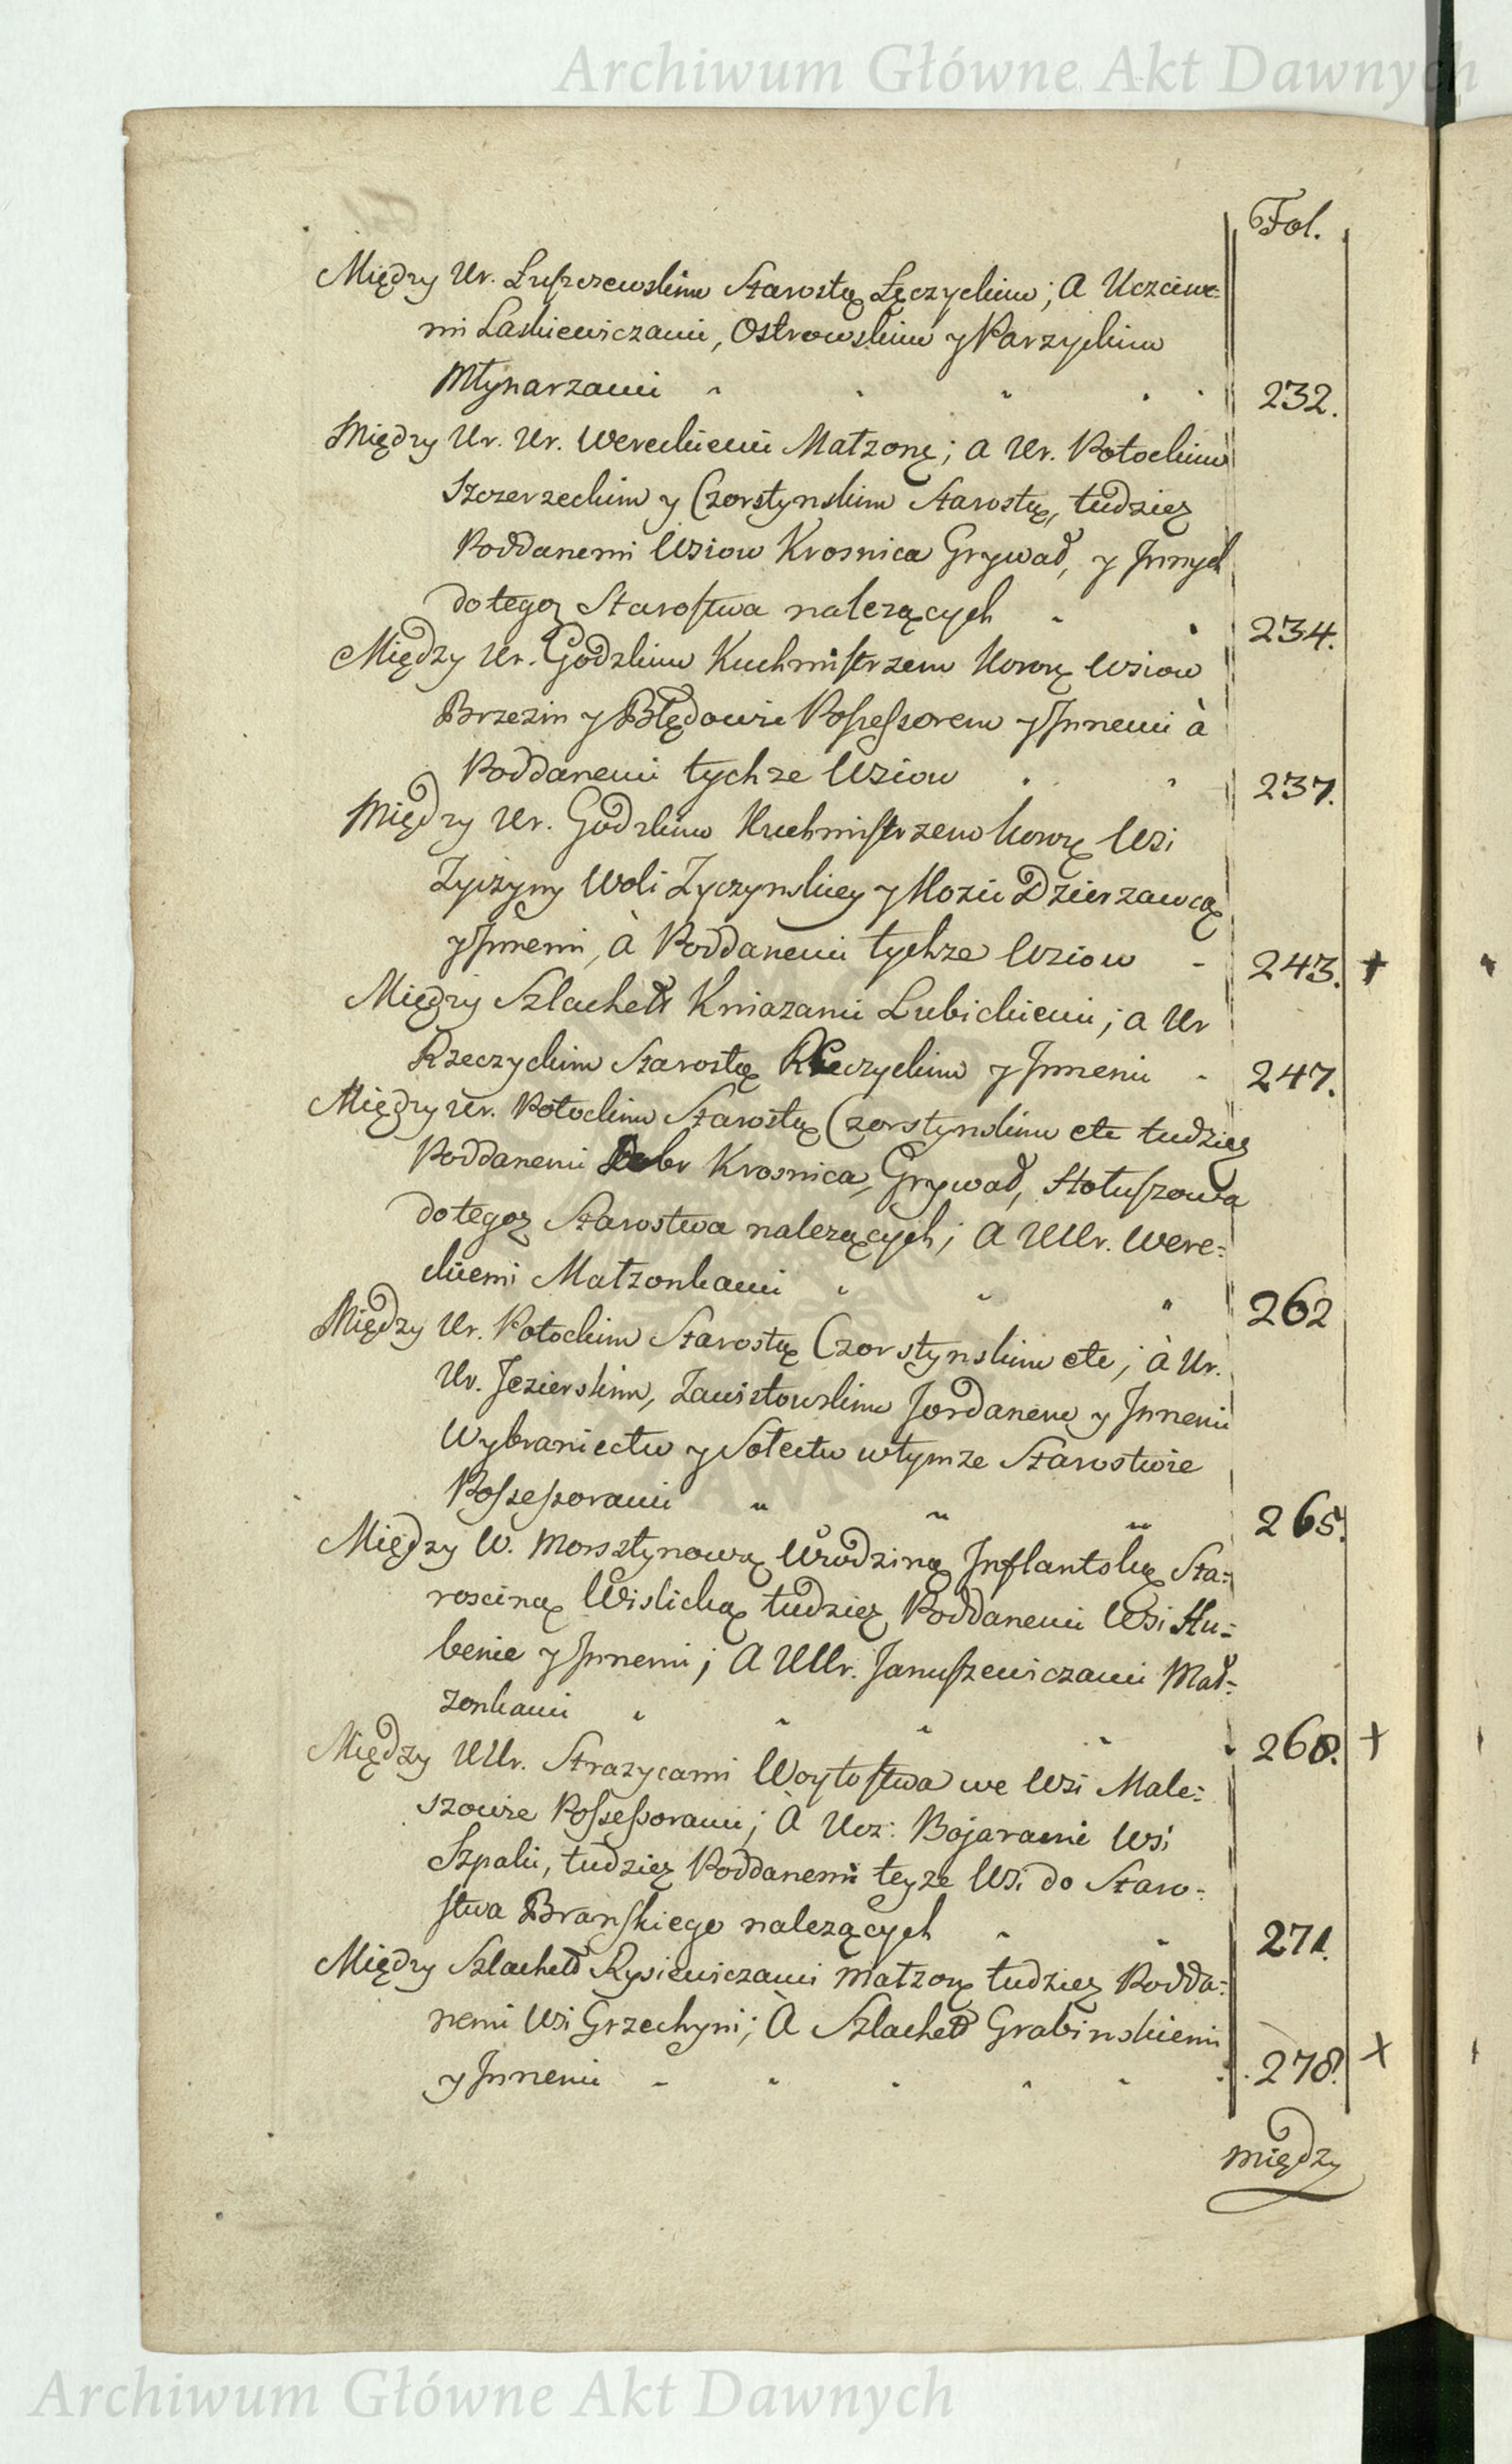 Archiwum Główne Akt Dawnych
Fol.
Między Ur. Łuszczewskim Starostą Łęczyckim; A Uczciwe=
mi Laskiewiczami, Ostrowskim y Parzyckim
Młynarzami 232.
Między Ur. Ur. Wereckiemi Małzonę; a Ur. Potockim
Szczerzeckim y Czorstynskim Starostą, tudziez
Poddanemi Wsiow Krosnica Grywałd, y Innych
do tegoz Starostwa nalezących 234.
Między Ur. Godzkim Kuchmistrzem Koronę Wsiow
Brzezin y Błędowie Possessorem y Innemi à
Poddanemi tychze Wsiow 237.
Między Ur. Godzkim Kuchmistrzem Koronę Wsi
Zyczyny Woli Zyczynskiey y Kozii Dzierzawcą
y Innemi, à Poddanemi tychze Wsiow 243. +
Między Szlachett Kniazami Lubickiemi; a Ur
Rzeczyckim Starostą Rzeczyckim y Innemi 247.
Między Ur. Potockim Starostą Czorstynskim etc tudziez
Poddanemi Dobr Krosnica, Grywałd, Hałuszowa
do tegoz Starostwa nalezących; A UUr. Were=
ckiemi Małzonkami 262
Między Ur. Potockim Starostą Czorstynskim etc; à Ur.
Ur. Jezierskim, Zawistowskim Jordanem y Innemi
Wybraniectw y Sołectw w tymze Starostwie
Possessorami 265.
Między W. Morsztynową Wwodziną Inflantską Sta=
rosciną Wislicką tudziez Poddanemi Wsi Hu=
benie y Innemi; A UUr. Januszewiczami Mał=
zonkami 268. +
Między UUr. Strazycami Woytostwa we Wsi Male=
szowie Possessorami; À Ucz: Bojarami Wsi
Szpaki, tudziez Poddanemi teyze Wsi do Staro=
stwa Branskiego nalezących 271.
Między Szlachett Rysiewiczami Małzonę tudziez Podda=
nemi Wsi Grzechyni; À Szlachett Grabinskiemi
y Innemi 278. +
Między
Archiwum Główne Akt Dawnych